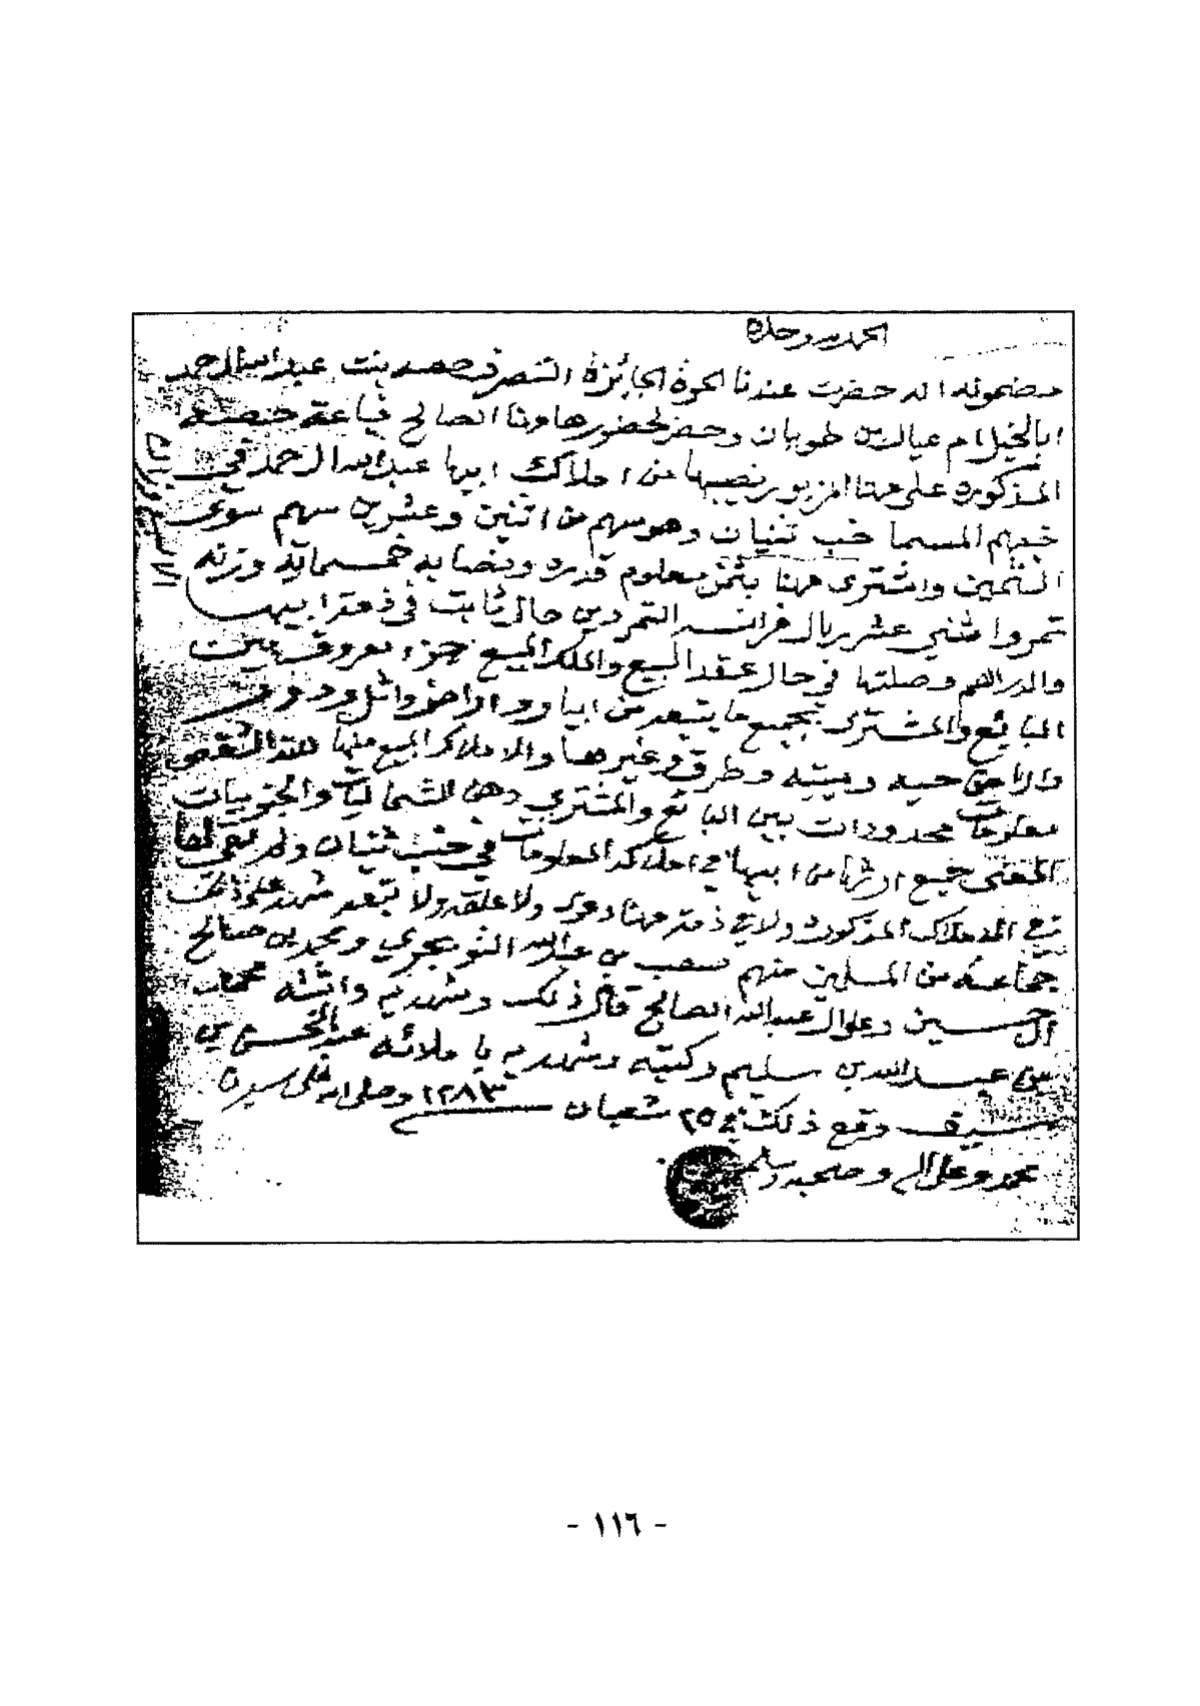 الحمد لله وحده
مضمونه انه حضرت عندنا الحرة الجايزة التصرف حصه بنت عبدالله الرحمد
ابا الخيل ام عيال بن طويان وحضر لحضورها مهنا الصالح فباعة حصه
المذكورة على مهنا المزبور نصيبها من املاك ابيها عبدالله الرحمد في
خبهم المسما خب ثنيان وهو سهم من اثنين وعشرين سهم سوى
الثمين واشترى مهنا بثمن معلوم قدره ونصابه خمسماية وزنه
تمر واثني عشر ريال فرانسه التمر دين حال ثابت في ذمة ابيها
والدراهم وصلتها في حال عقد البيع والملك المبيع جزء معروف بين
البائع والمشتري بجميع ما يتبعه من ابيار واراضي واثل ودور
والاحق حيه وميته وطرق وغيرها والاملاك المبيع منها هذا الشقص
معلومات محدودات بين البائع والمشتري وهن الشماليات والجنوبيات
المعنى جميع ارثها من ابيها في املاكه المعلومات في خب ثنيان ولم بقي لها
في الاملاك المذكورة ولا في ذمة مهنا دعوى ولا علقه ولا تبعه شهد على ذلك
جماعة من المسلمين منهم صعب بن عبدالله التويجري ومحمد بن صالح
ال حسين وعلي ال عبدالله الصالح قال ذلك وشهد به واثبته محمد
بن عبدالله بن سليم وكتبه وشهد به باملائه عبدالمحسن بن
سيف وقع ذلك في ٢٥ شعبان ١٢٨٣ وصلى الله على سيدنا
محمد وعلى اله وصحبه وسلم
- ١١٦ -